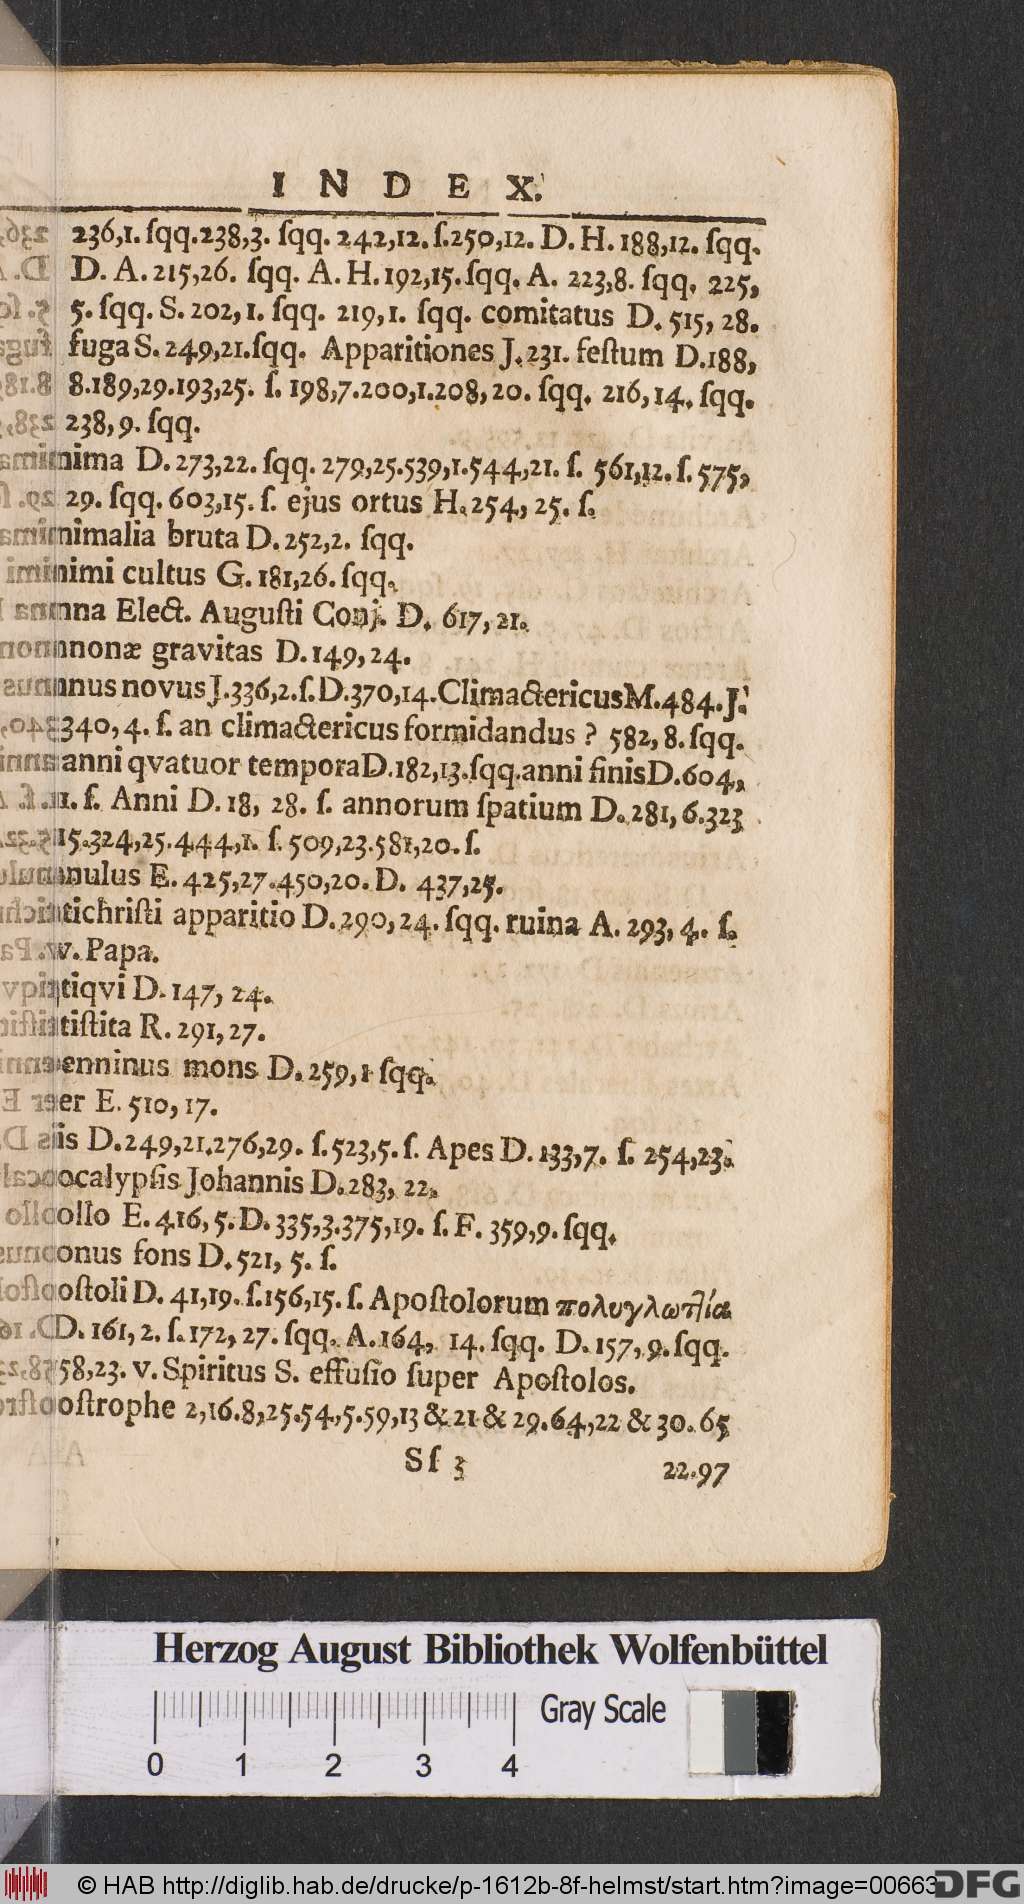 INDEX.
236,1. ſqq.238,3. ſqq. 242,12. ſ.250,12. D. H. 188,12. ſqq.
D. A. 215,26. ſqq. A. H. 192,15. ſqq. A. 223,8. ſqq. 225,
5. ſqq. S. 202, 1. ſqq. 219,1. ſqq. comitatus D. 515, 28.
fuga S. 249,21.ſqq. Apparitiones J. 231. feſtum D.188,
8.189,29.193,25. ſ. 198,7.200,1.208, 20. ſqq. 216, 14. ſqq.
238, 9. ſqq.
nima D. 273,22. ſqq. 279,25.539,1.544,21. ſ. 561,12. ſ. 575,
29. ſqq. 603,15. ſ. ejus ortus H. 254, 25. ſ.
nimalia bruta D. 252,2. ſqq.
nimi cultus G. 181,26. ſqq.
nna Elect. Auguſti Conj. D. 617, 21.
nnonæ gravitas D. 149, 24.
nnus novus J.336,2. ſ.D.370,14. Climactericus M.484. J.
340, 4. ſ. an climactericus formidandus ? 582, 8. ſqq.
anni qvatuor tempora D.182,13.ſqq.anni finis D.604,
11. ſ. Anni D. 18, 28. ſ. annorum ſpatium D. 281, 6.323
15.324,25.444,1. ſ. 509,23.581,20. ſ.
nulus E. 425,27.450,20. D. 437,25.
tichriſti apparitio D. 290, 24. ſqq. ruina A. 293, 4. ſ.
v. Papa.
tiqvi D. 147, 24.
tiſtita R. 291, 27.
enninus mons D. 259,1 ſqq.
er E. 510, 17.
is D. 249,21.276,29. ſ.523,5. ſ. Apes D. 133,7. ſ. 254,23.
ocalypſis Johannis D. 283, 22.
ollo E. 416, 5. D. 335,3.375,19. ſ. F. 359,9. ſqq.
onus fons D. 521, 5. ſ.
oſtoli D. 41,19. ſ.156,15. ſ. Apoſtolorum πολυγλωττία
D. 161, 2. ſ. 172, 27. ſqq. A. 164, 14. ſqq. D. 157, 9. ſqq.
58,23. v. Spiritus S. effuſio ſuper Apoſtolos.
oſtrophe 2,16.8,25.54,5.59,13 & 21 & 29.64,22 & 30. 65
Sſ 3 22.97
Herzog August Bibliothek Wolfenbüttel
Gray Scale
0 1 2 3 4
© HAB http://diglib.hab.de/drucke/p-1612b-8f-helmst/start.htm?image=00663
DFG